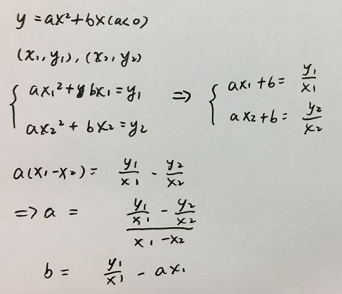 y = ax² + bx (a<0)
(x₁, y₁), (x₂, y₂)
{ ax₁² + bx₁ = y₁ ⇒ { ax₁ + b = y₁/x₁
ax₂² + bx₂ = y₂ ax₂ + b = y₂/x₂
a(x₁-x₂) = y₁/x₁ - y₂/x₂
⇒ a = (y₁/x₁ - y₂/x₂)/(x₁-x₂)
b = y₁/x₁ - ax₁